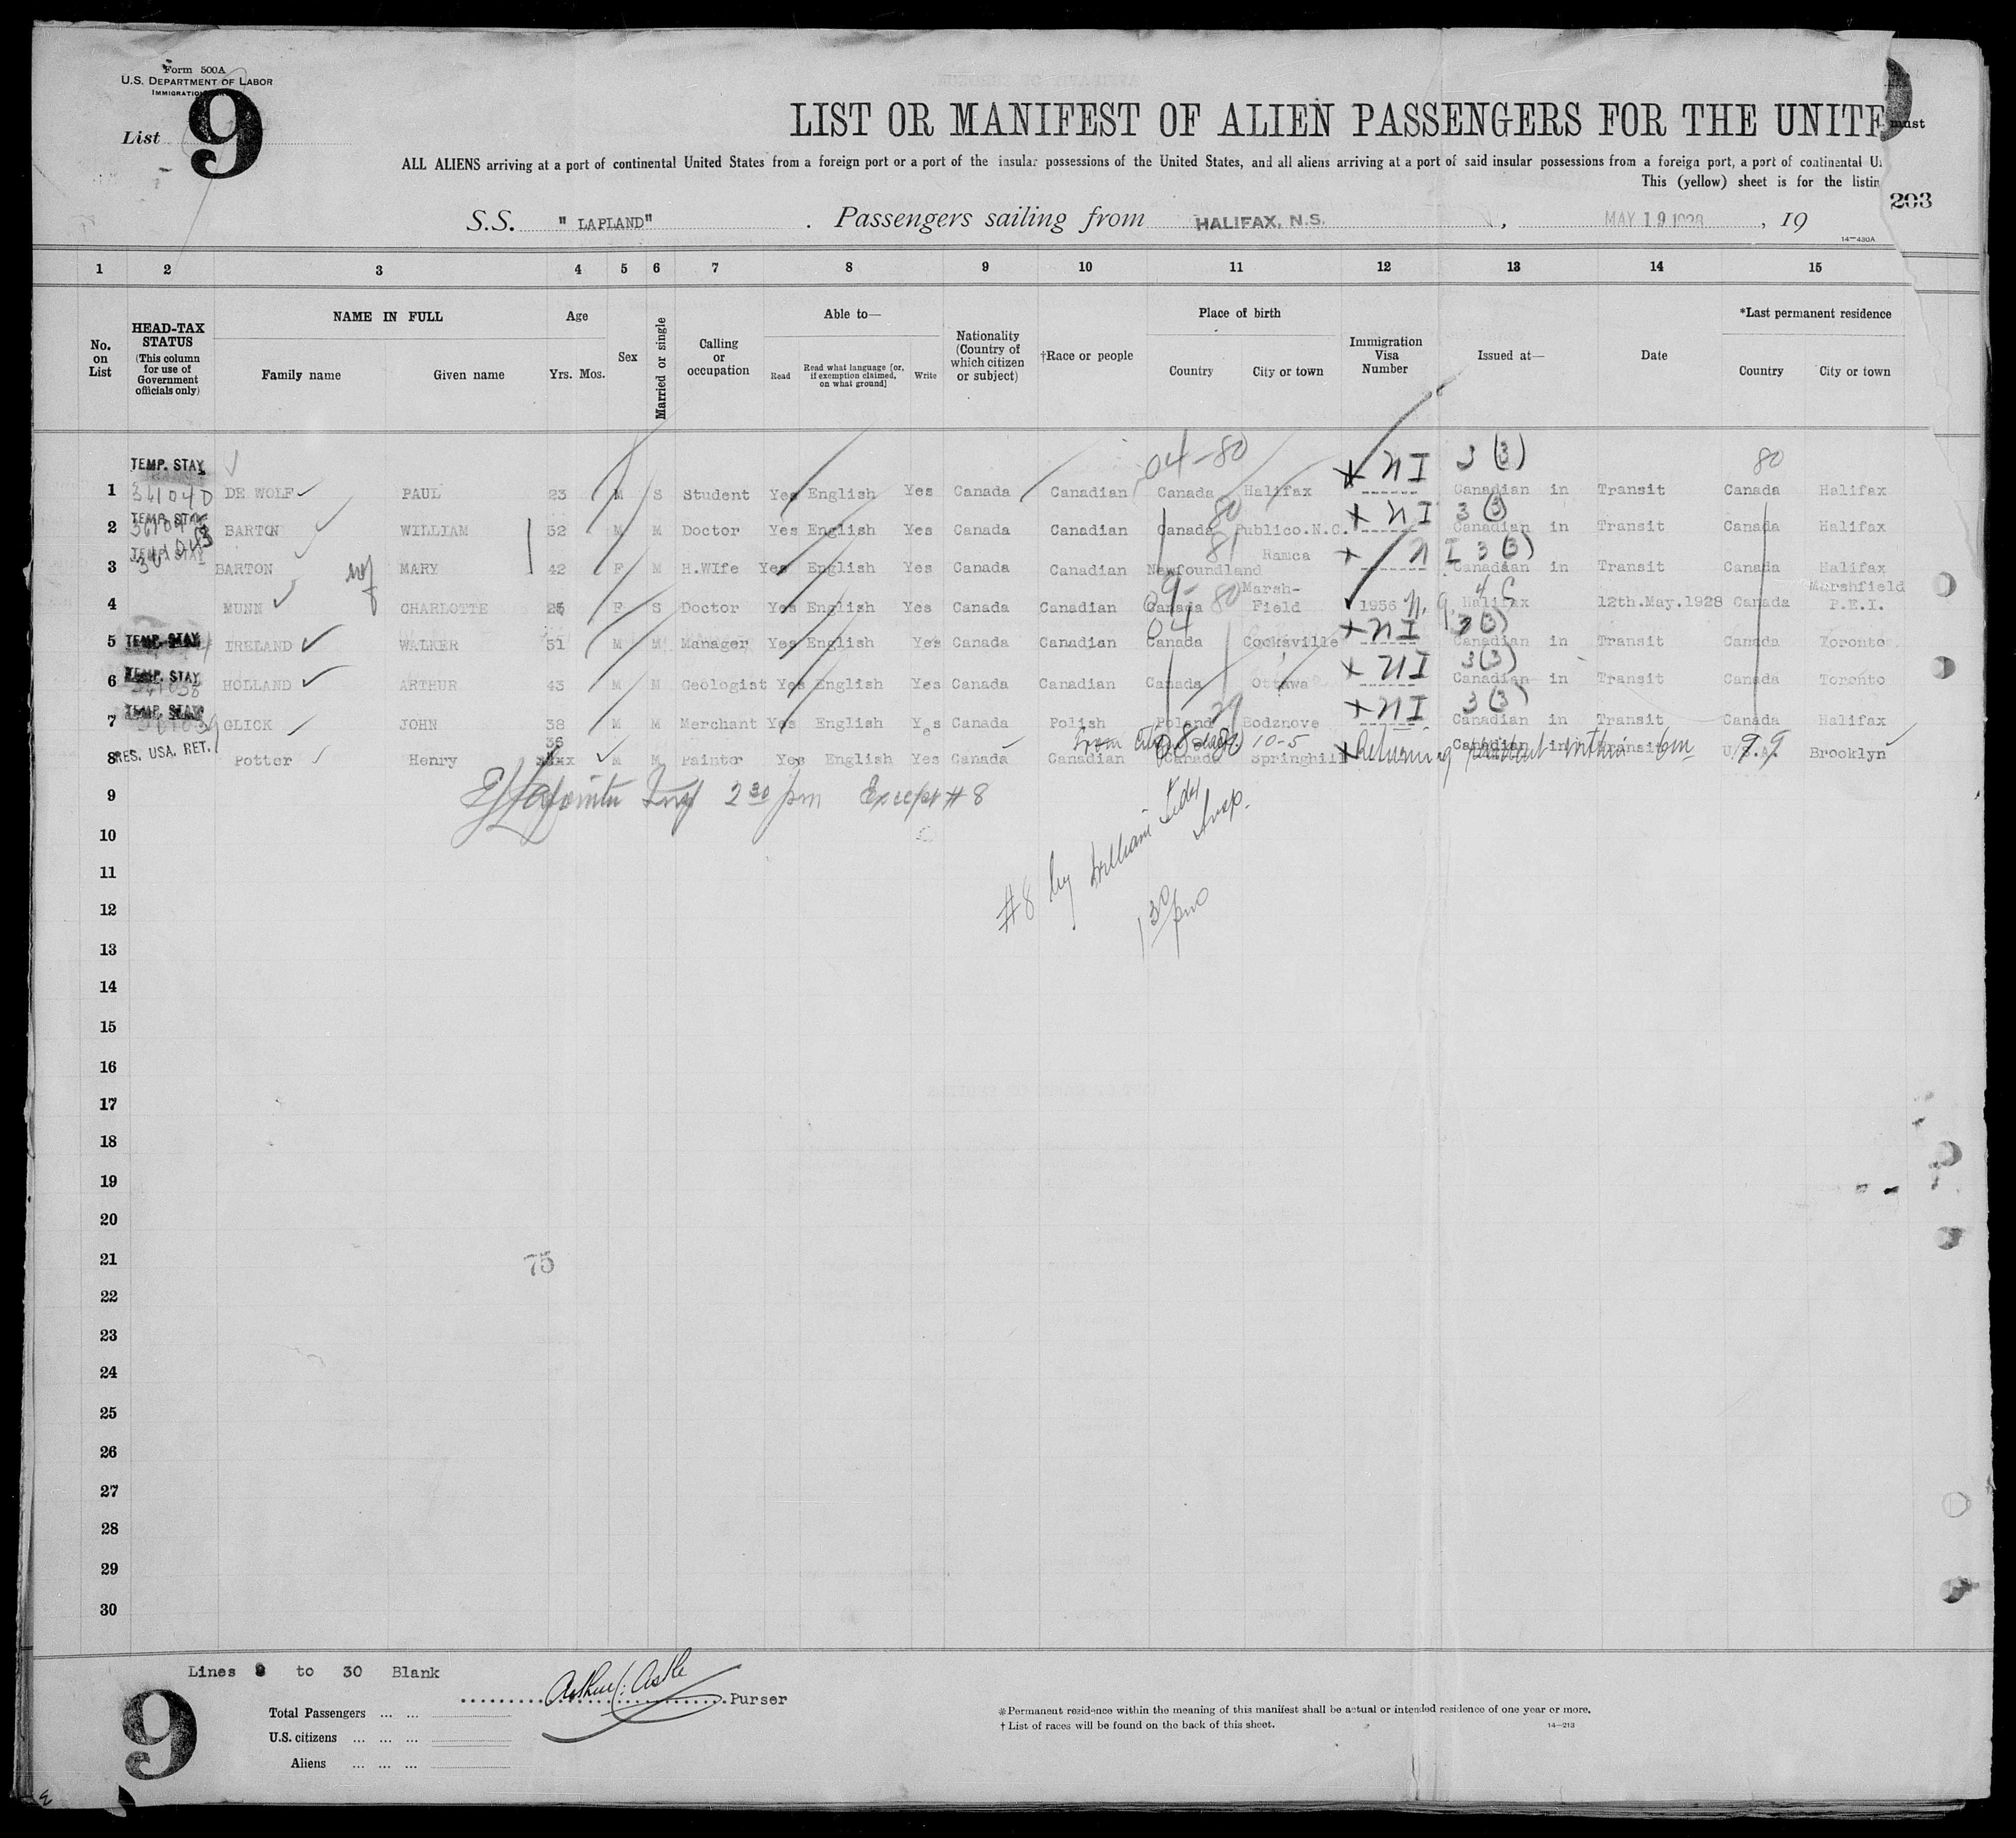 Form 500A
U.S. DEPARTMENT OF LABOR
List 9
LIST OR MANIFEST OF ALIEN PASSENGERS FOR THE UNITE
must
ALL ALIENS arriving at a port of continental United States from a foreign port or a port of the insular possessions of the United States, and all aliens arriving at a port of said insular possessions from a foreign port, a port of continental U
This (yellow) sheet is for the listin
203
S.S. "LAPLAND". Passengers sailing from HALIFAX, N.S., MAY 19 1928, 19
14—430A
1 2 3 4 5 6 7 8 9 10 11 12 13 14 15
No. on List
HEAD-TAX STATUS (This column for use of Government officials only)
NAME IN FULL Family name Given name
Age Yrs. Mos.
Sex
Married or single
Calling or occupation
Able to— Read Read what language [or, if exemption claimed, on what ground] Write
Nationality (Country of which citizen or subject)
†Race or people
Place of birth Country City or town
Immigration Visa Number
Issued at—
Date
*Last permanent residence Country City or town
04-80 80
1 TEMP. STAY 361040 DE WOLF PAUL 23 M S Student Yes English Yes Canada Canadian Canada Halifax NI 3(3) Canadian in Transit Canada Halifax
2 TEMP. STAY BARTON WILLIAM 52 M M Doctor Yes English Yes Canada Canadian Canada 80 Publico.N.C. NI 3(3) Canadian in Transit Canada Halifax
3 TEMP. STAY BARTON wf MARY 42 F M H.WIfe Yes English Yes Canada Canadian Newfoundland 81 Ramea NI 3(3) Canadian in Transit Canada Halifax
4 MUNN CHARLOTTE 25 F S Doctor Yes English Yes Canada Canadian Canada 80 Marsh-Field 1956 N.Q. 4C Halifax 12th.May.1928 Canada Marshfield P.E.I.
5 TEMP. STAY IRELAND WALKER 51 M M Manager Yes English Yes Canada Canadian 04 Canada Cocksville NI 3(3) Canadian in Transit Canada Toronto
6 TEMP. STAY 361038 HOLLAND ARTHUR 43 M M Geologist Yes English Yes Canada Canadian Canada Ottawa NI 3(3) Canadian in Transit Canada Toronto
7 TEMP. STAY GLICK JOHN 38 M M Merchant Yes English Yes Canada Polish Poland 29 Bodznove NI 3(3) Canadian in Transit Canada Halifax
8 RES. USA. RET. Potter Henry 36 xxx M M Painter Yes English Yes Canada Canadian Canada 10-5 Springhill Returning resident within 6m Canadian in Transit U.S.A. 99 Brooklyn
9 Insp 2 30 pm Except #8
10
#8 by William Insp.
11
12
1 30 pm
13
14
15
16
17
18
19
20
21
75
22
23
24
25
26
27
28
29
30
Lines 9 to 30 Blank
Arthur C. Astle Purser
9
Total Passengers ... ...
U.S. citizens ... ... ...
Aliens ... ... ...
*Permanent residence within the meaning of this manifest shall be actual or intended residence of one year or more.
†List of races will be found on the back of this sheet.
14—213